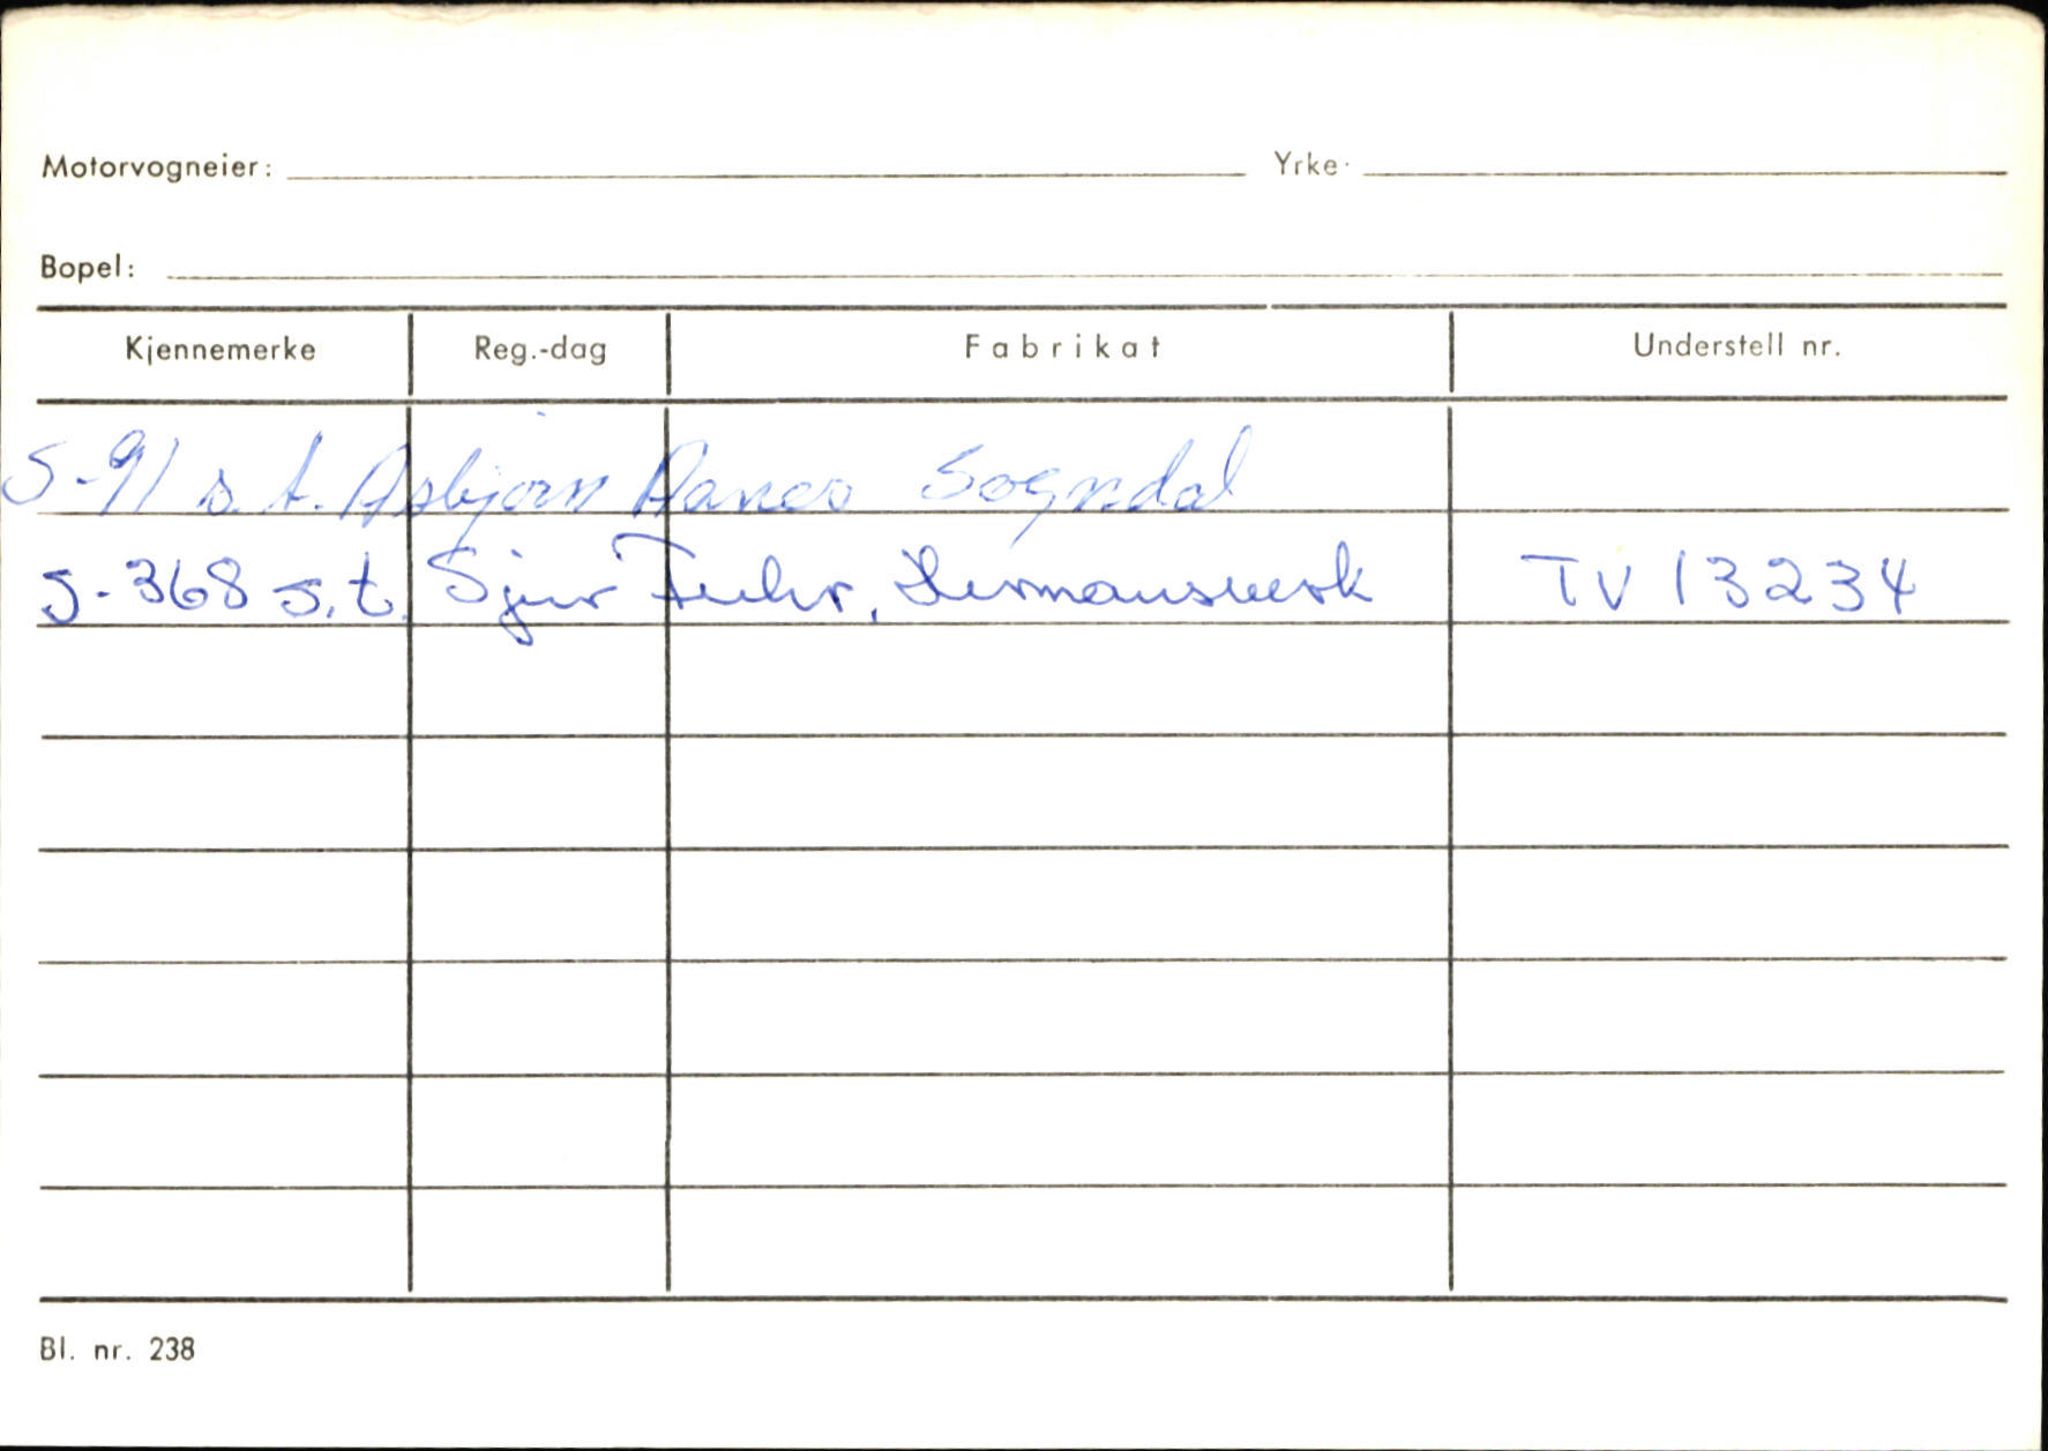 Motorvogneier: Yrke:
Bopel:
Kjennemerke Reg.-dag Fabrikat Understell nr.
S-91 s.t. Asbjørn Aanes Sogndal
S-368 s.t. Sjur Fuhr, Hermansverk TV 13234
Bl. nr. 238